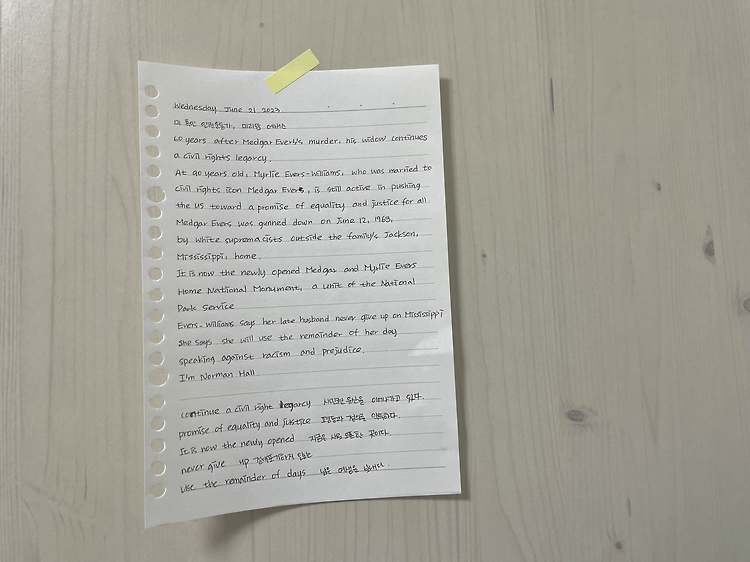 Wednesday June 21 2023
미 흑인 인권운동가, 미리왕 에버슨
60 years after Medgar Evers's murder, his widow continues
a civil rights legarcy.
At 90 years old, Myrlie Evers-Williams, who was married to
civil rights icon Medgar Evers, is still active in pushing
the US toward a promise of equality and justice for all
Medgar Evers was gunned down on June 12, 1963,
by white supremacists outside the family's Jackson,
Mississippi, home.
It is now the newly opened Medgar and Myrlie Evers
Home National Monument, a unit of the National
Park Service
Evers-Williams says her late husband never give up on Mississippi
She says she will use the remainder of her day
speaking against racism and prejudice.
I'm Norman Hall
continue a civil right legarcy 시민권 유산을 이어나가고 있다.
promise of equality and justice 평등과 정의를
It is now the newly opened 지금은 새로 오픈한 곳이다.
never give up 절대 포기하지 않는
use the remainder of days 남은 여생을